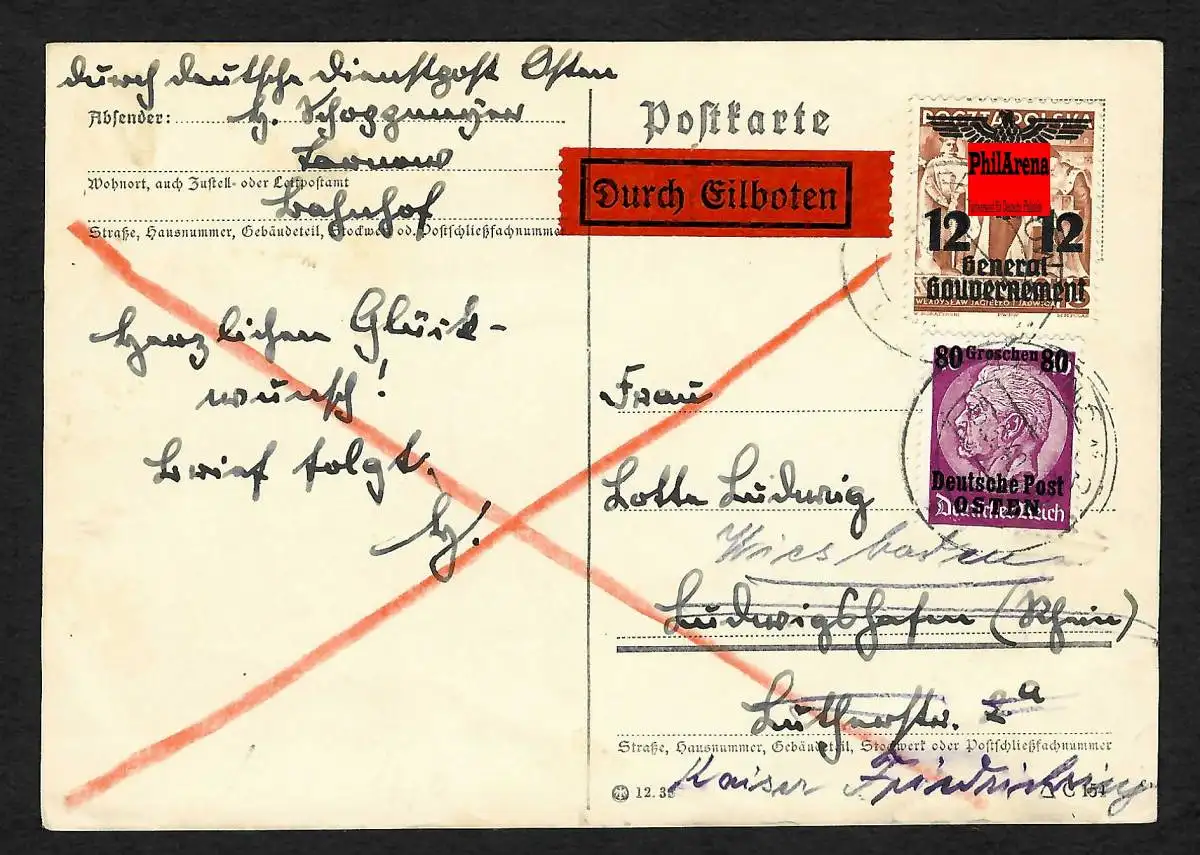 durch deutsche Dienstpost Osten
Absender: H. Schoppmeyer
Tarnow
Wohnort, auch Zustell- oder Leitpostamt
Bahnhof
Straße, Hausnummer, Gebäudeteil, Stockwerk od. Postschließfachnummer
Herzlichen Glück-
wunsch!
Brief folgt.
H.
Postkarte
Durch Eilboten
POCZTA POLSKA
PhilArena
12 12
General-
Gouvernement
WŁADYSŁAW JAGIEŁŁO I JADWIGA
15
80 Groschen 80
Deutsche Post
OSTEN
Deutsches Reich
Frau
Lotte Ludwig
Wiesbaden
Ludwigshafen (Rhein)
Lutherstr. 2a
Straße, Hausnummer, Gebäudeteil, Stockwerk oder Postschließfachnummer
Kaiser Friedrichring
12.39
C 154